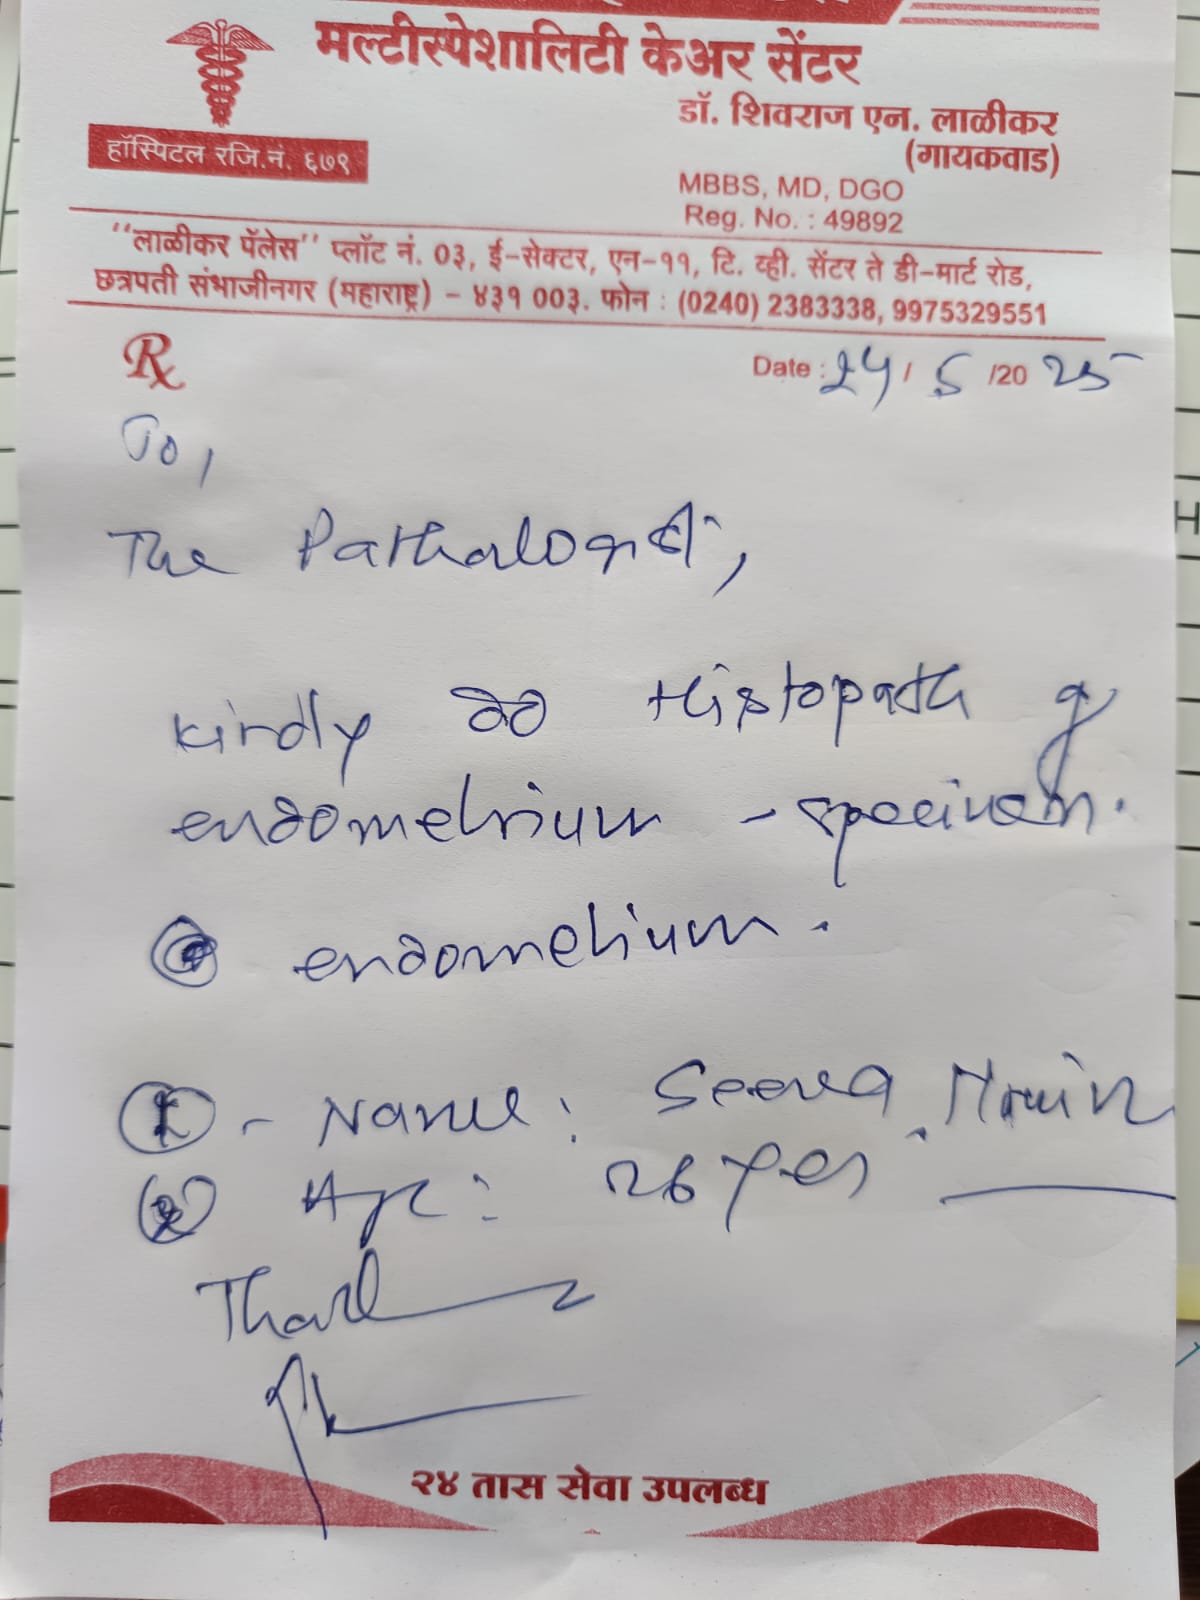 मल्टीस्पेशालिटी केअर सेंटर
डॉ. शिवराज एन. लाळीकर
(गायकवाड)
हॉस्पिटल रजि.नं. ६७९
MBBS, MD, DGO
Reg. No. : 49892
"लाळीकर पॅलेस" प्लॉट नं. 0३, ई-सेक्टर, एन-११, टि. व्ही. सेंटर ते डी-मार्ट रोड,
छत्रपती संभाजीनगर (महाराष्ट्र) - ४३१ 00३. फोन : (0240) 2383338, 9975329551
Rx
Date : 24 / 5 /20 25
To,
The Pathalogist,
Kindly do Histopath of
endometrium - specimen.
endometrium.
1 - Name:
2 Age: 26 yrs
२४ तास सेवा उपलब्ध